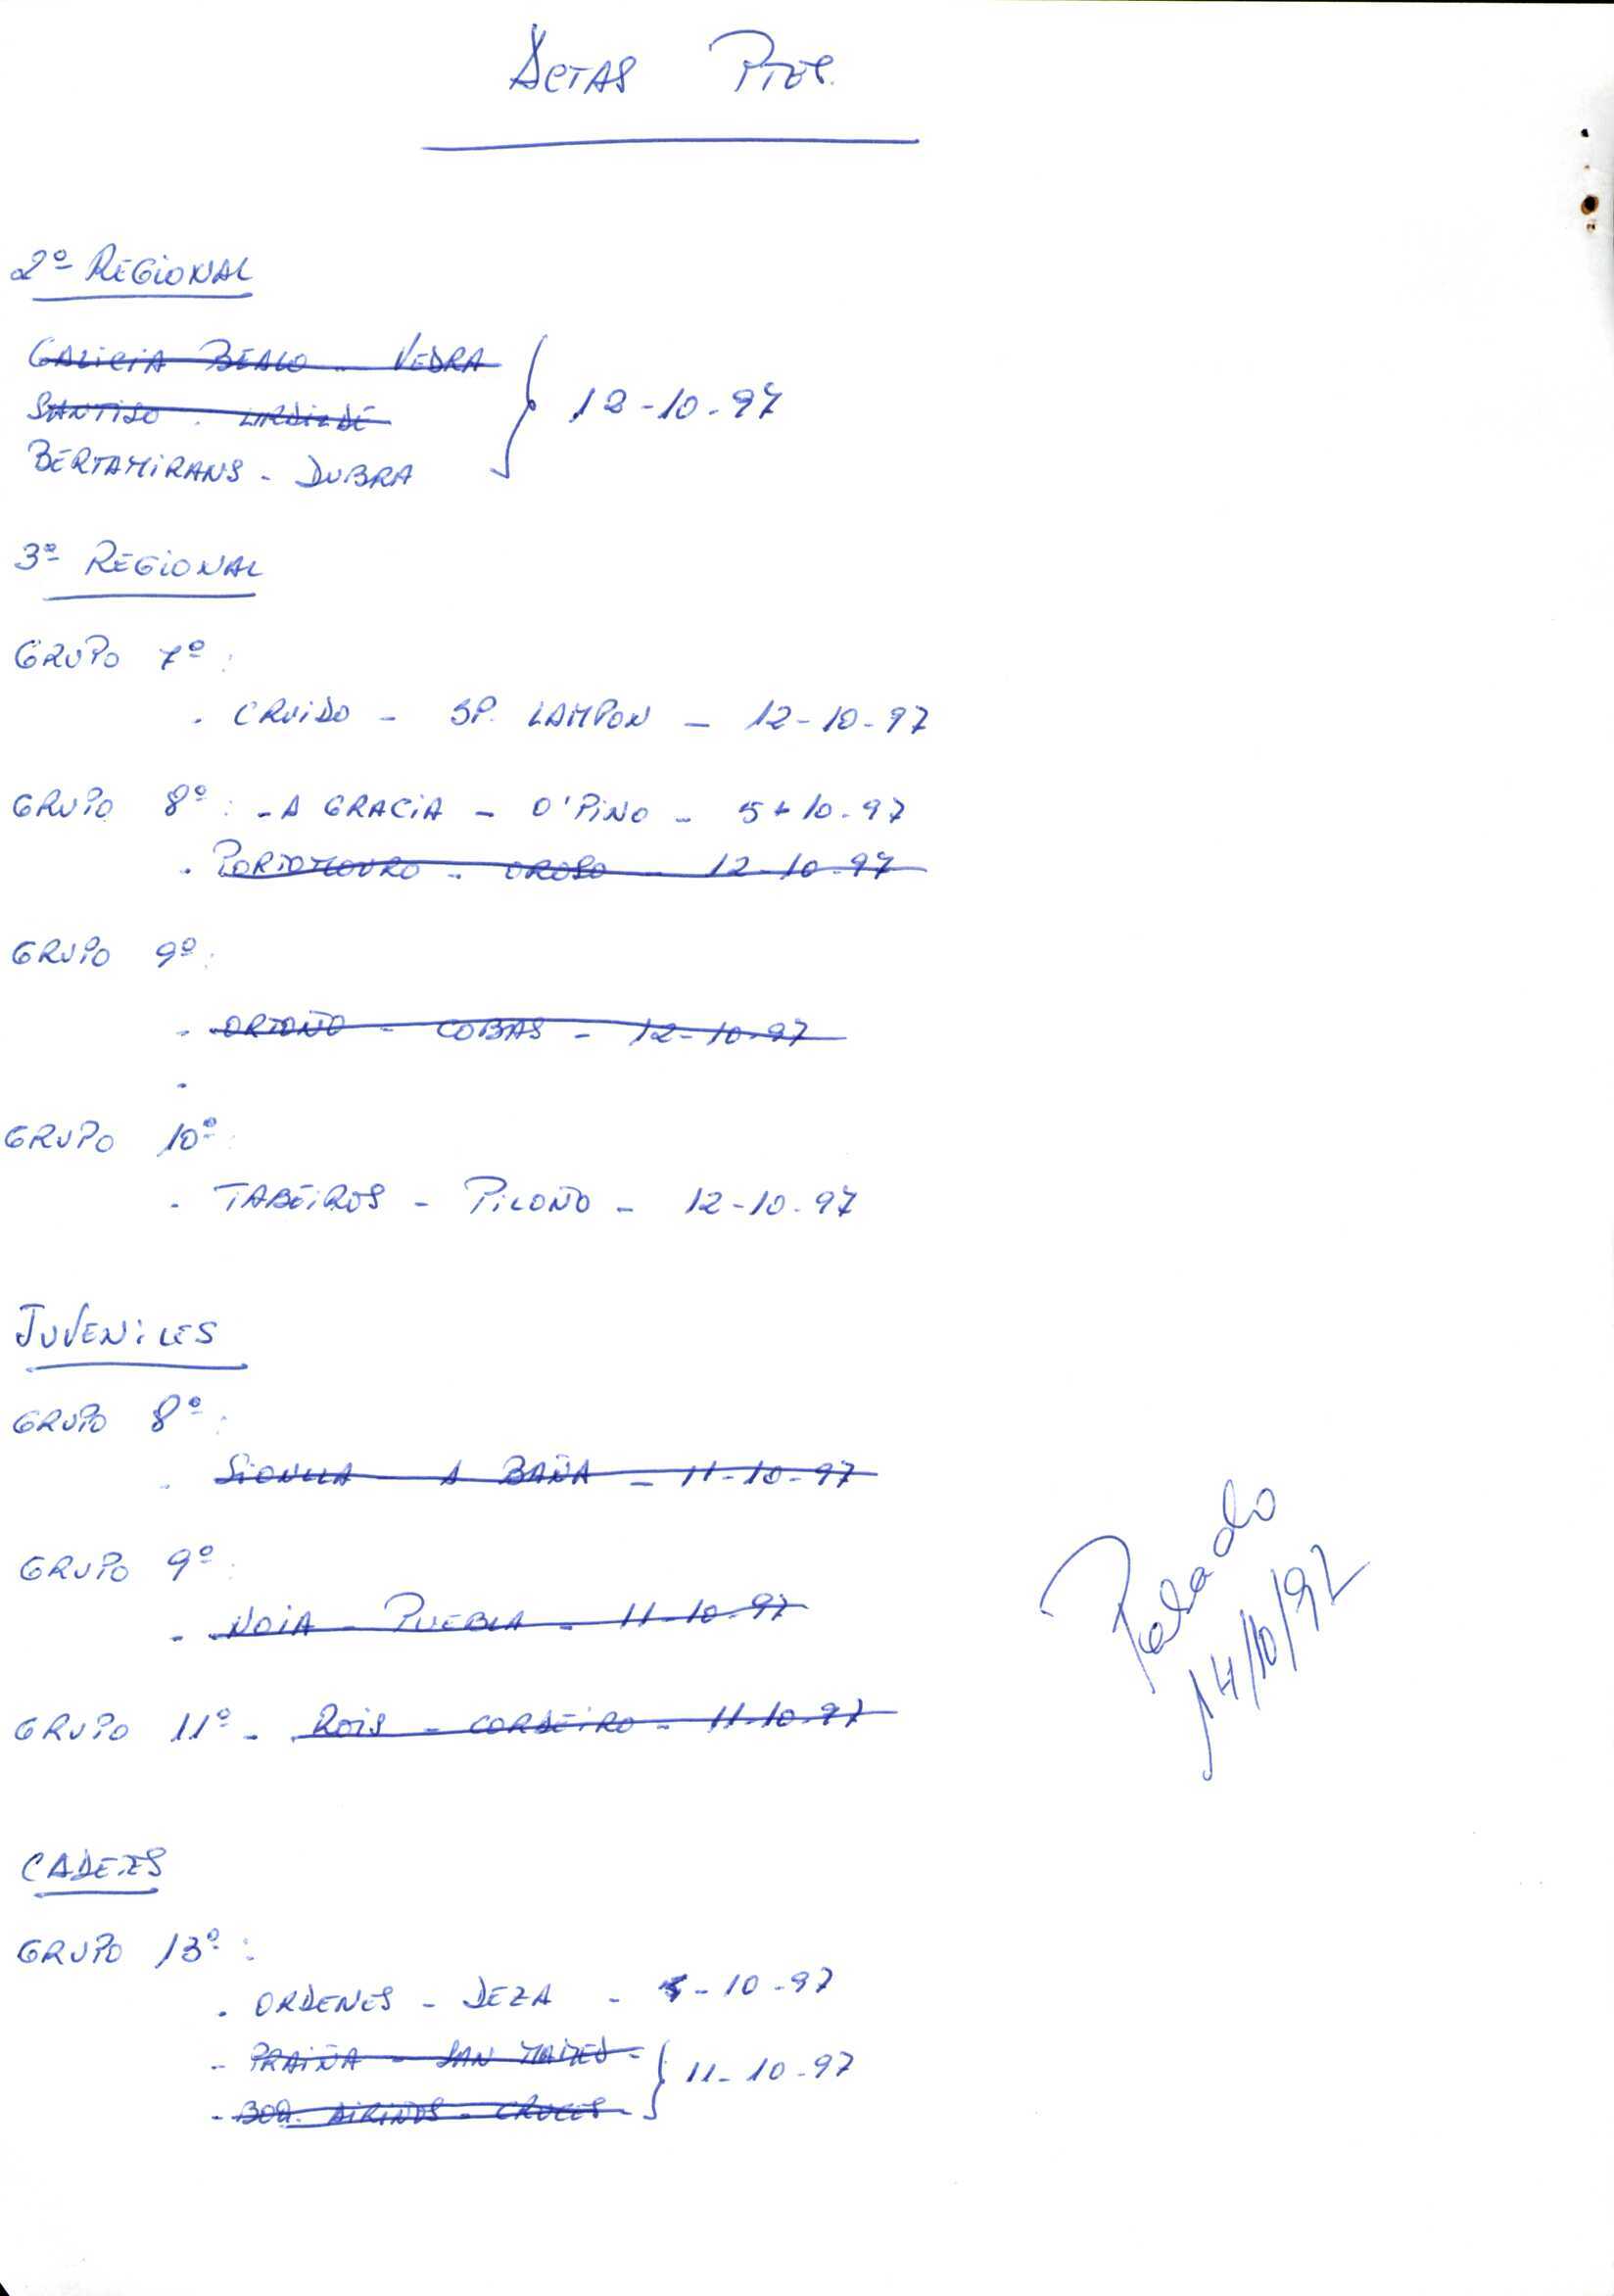 ACTAS PTES.
2ª REGIONAL
GALICIA BEALO - VEDRA
SANTISO -
BERTAMIRANS - DUBRA
12-10-97
3ª REGIONAL
GRUPO 7º:
. CRUIDO - SP. LAMPON - 12-10-97
GRUPO 8º: - A GRACIA - O'PINO - 5-10-97
. PORTOMOURO - OROSO - 12-10-97
GRUPO 9º:
. ORTOÑO - COBAS - 12-10-97
.
GRUPO 10º:
. TABEIROS - PILOÑO - 12-10-97
JUVENILES
GRUPO 8º:
. SIONLLA - A BAÑA - 11-10-97
GRUPO 9º:
. NOIA - PUEBLA - 11-10-97
GRUPO 11º - ROIS - CORDEIRO - 11-10-97
CADETES
GRUPO 13º:
. ORDENES - DEZA - -10-97
- PRAIÑA - SAN MAMED -
- BOQ. AIRIÑOS - CRUCES -
11-10-97
14/10/97